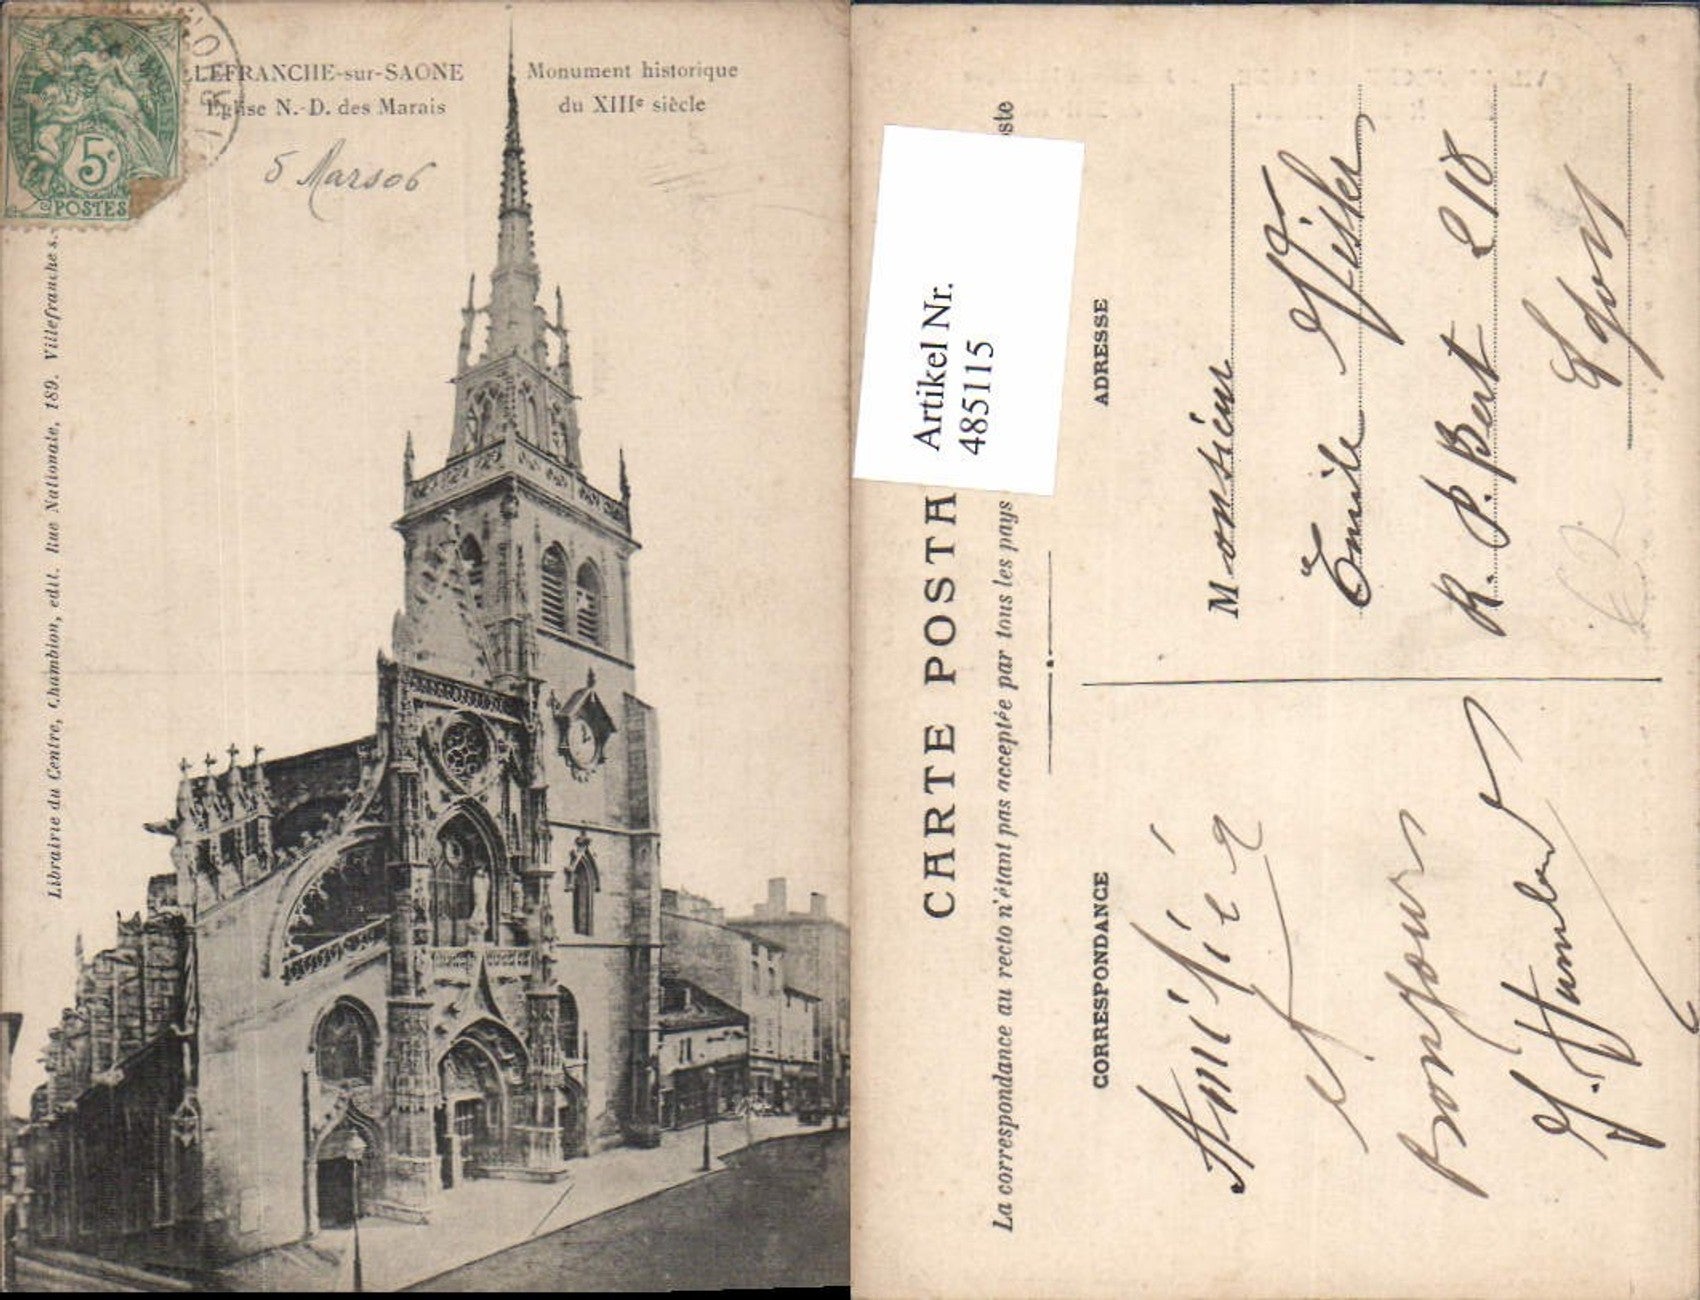 LEFRANCHE-sur-SAONE
Eglise N.-D. des Marais
Monument historique
du XIIIe siècle
5 Mars 06
5c
POSTES
Librairie du Centre, Chambion, edit. Rue Nationale, 189. Villefranche s.
CARTE POSTA
La correspondance au recto n'étant pas acceptée par tous les pays
oste
Artikel Nr.
485115
CORRESPONDANCE
Amitiés
et
bonjours
ADRESSE
Monsieur
Emile
R. P. Bert 218
Lyon